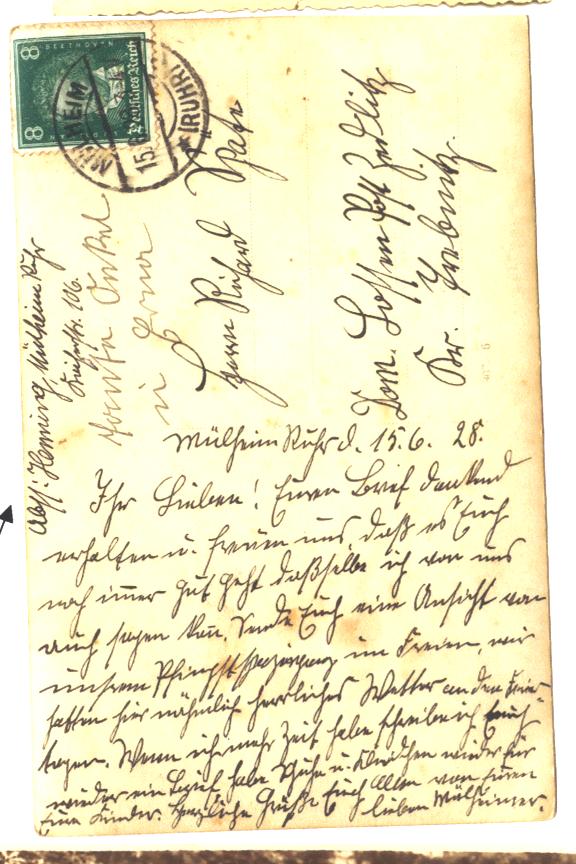 BEETHOVEN
8
8
Deutsches Reich
MÜLHEIM (RUHR)
15.6
Abs: Henning, Mülheim Ruhr
106.
Tante Onkel
u Erna
Herrn Richard Späte
Dom. Lossen Post Zedlitz
Kr. Trebnitz.
Mülheim Ruhr d. 15.6. 28.
Ihr Lieben! Euren Brief dankend
erhalten u. freuen uns, daß es Euch
noch imer gut geht daßselbe ich von uns
auch sagen kan. Sende Euch eine Ansicht von
unsrem im Freien, wir
hatten hier nähmlich herrliches Wetter an den Feier
tagen. Wenn ich mehr Zeit habe schreibe ich Euch
wieder ein Brief, habe Schuhe u. Kleidchen wieder für
Eure Kinder. Herzliche Grüße Euch Allen von Euren
lieben Mülheimer.